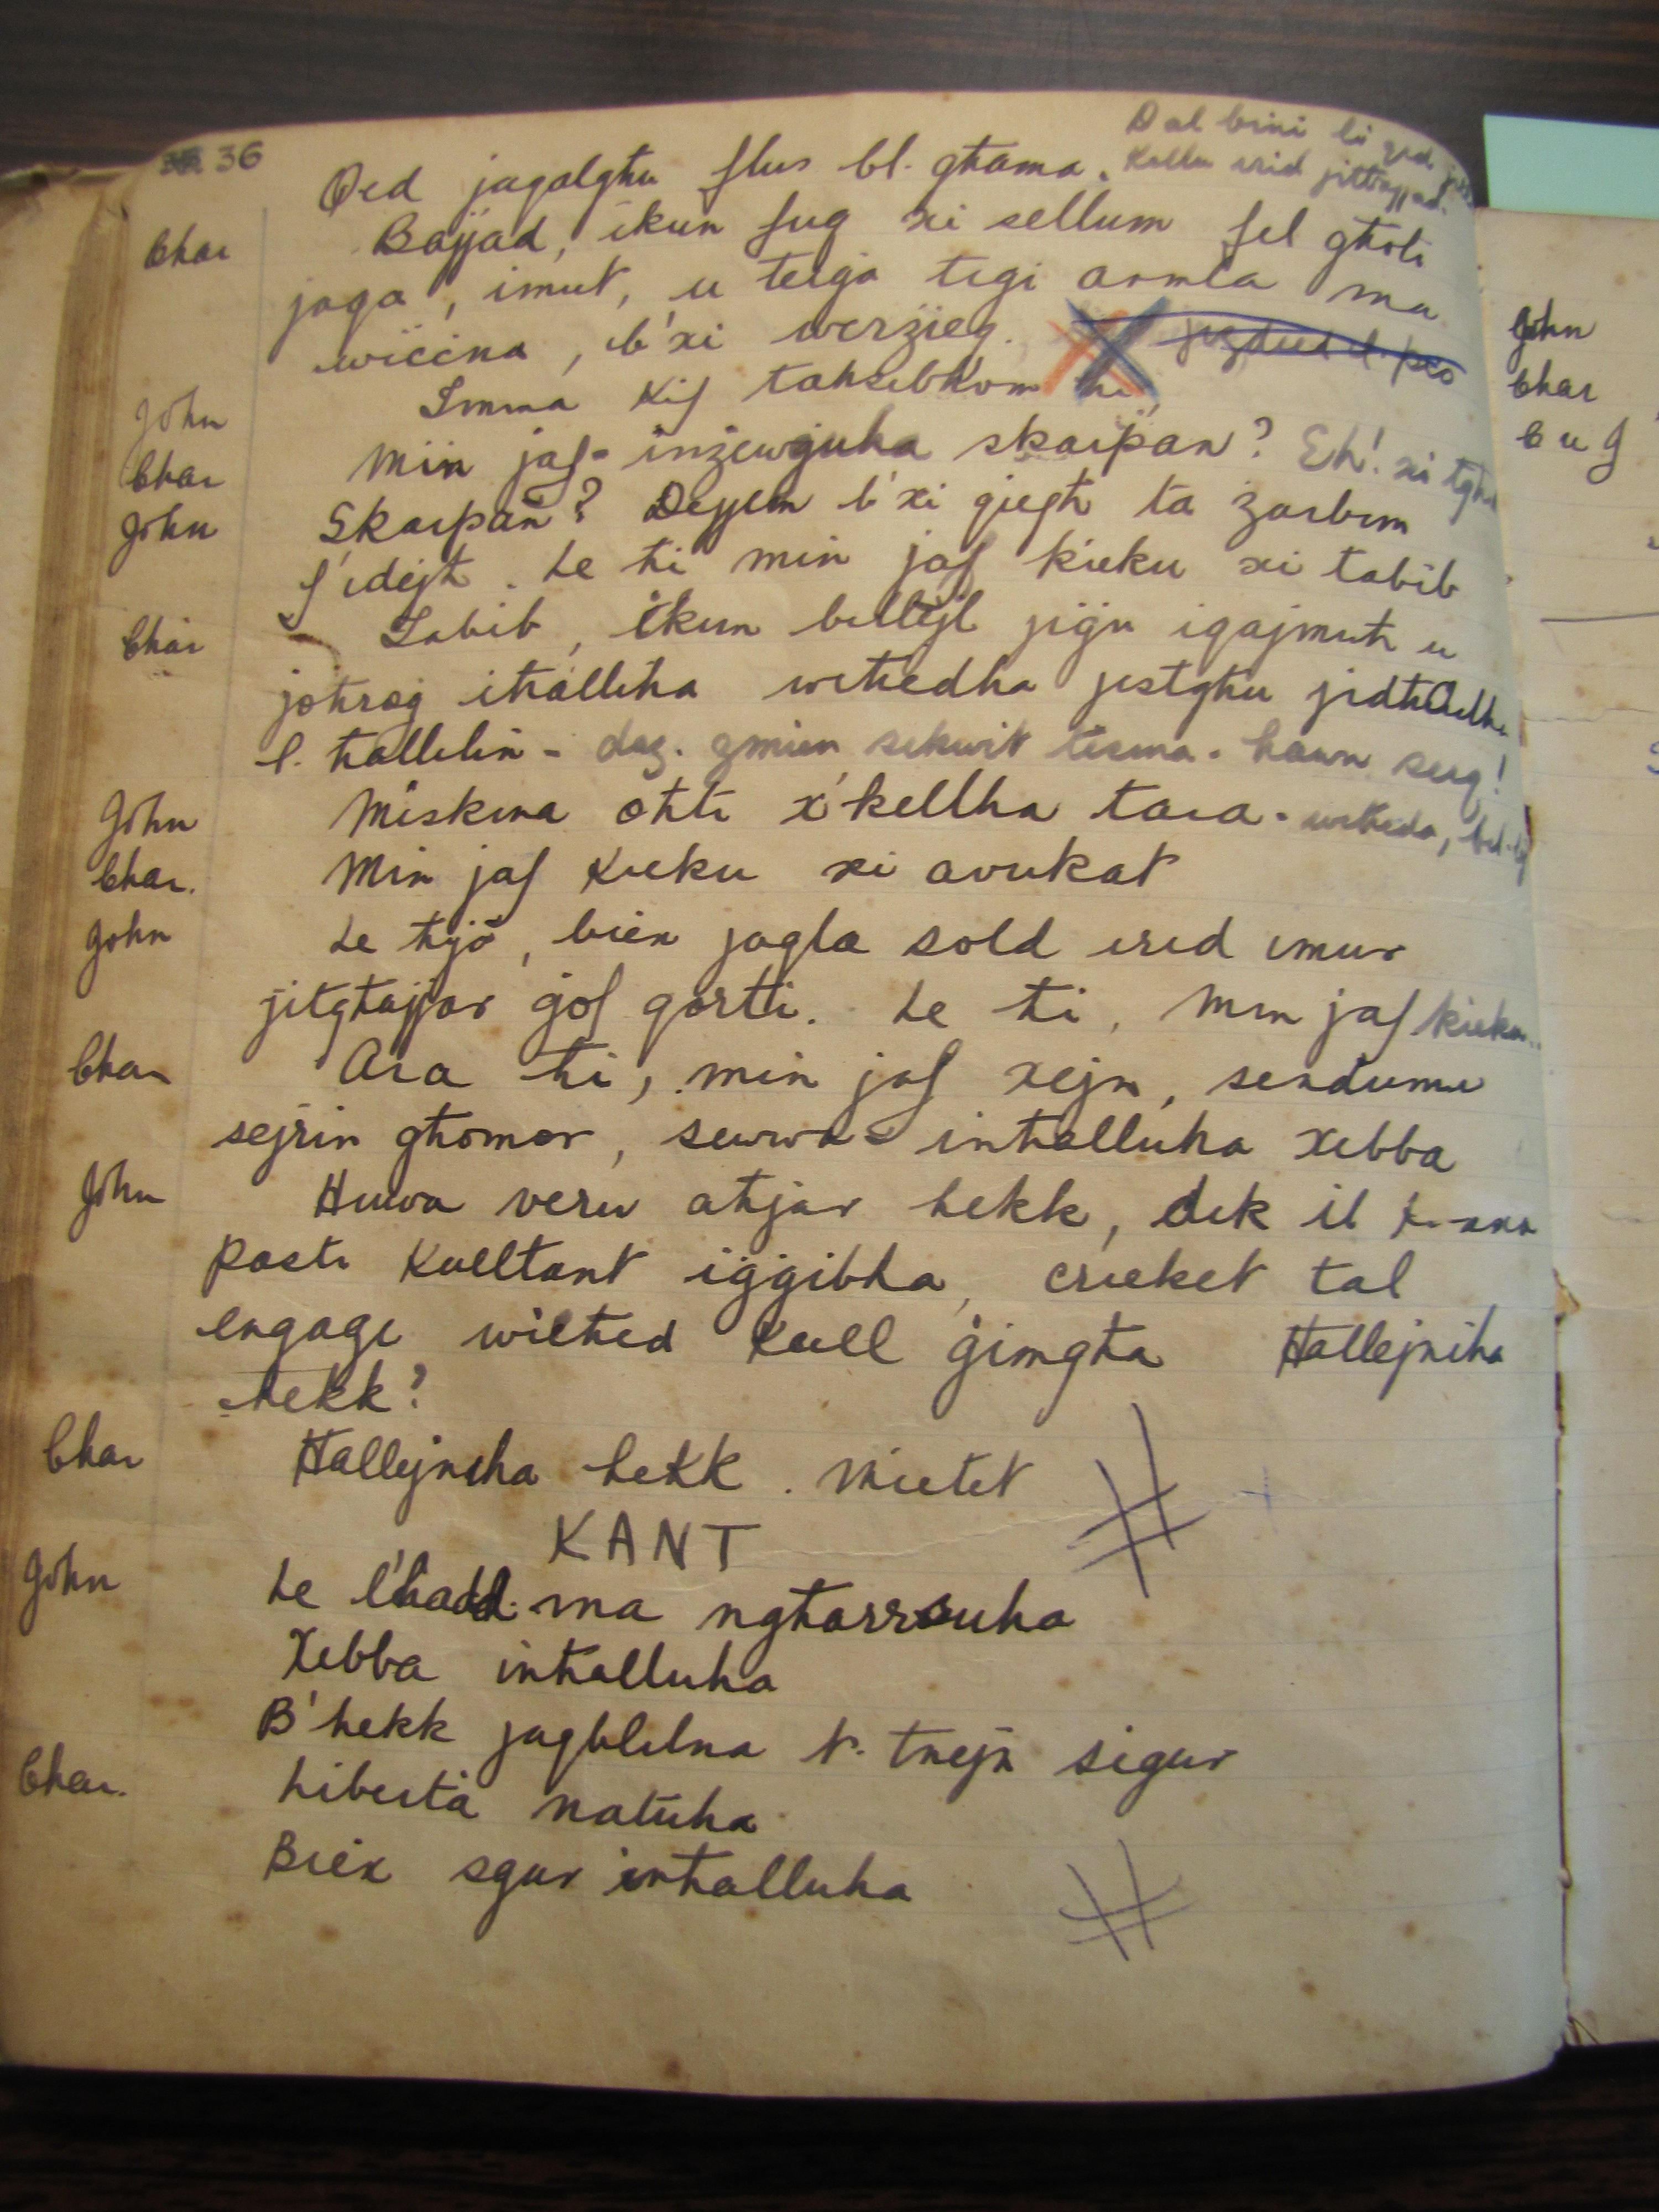 36
Dal bini li qed
Kollu irid jittajjad.
Qed jaqalghu flus bl. ghama.
Char Bajjad, ikun fuq xi sellum fil gholi
jaqa', imut, u teiga tigi armla ma
wiċċna, b'xi werżieq.
John Imma kif taħsibhom hi,
Char Min jaf inżewġuha skarpan? Eh! xi
John Skarpan? Dejjem b'xi ġiegħ ta żarbun
f'idejh. Le ħi min jaf kieku xi tabib
Char Tabib, ikun billejl jiġu iqajmuh u
joħroġ iħalliha weħedha jistgħu jidħolulha
l. ħallelin - daż. żmien sikwit tisma. hawn serq!
John Miskina oħti x'kellha tara. weħida, bil-lejl
Char. Min jaf kieku xi avukat
John Le ħija, biex jaqla sold irid imur
jitgħajjar ġof qorti. Le ħi, min jaf kieku..
Char Ara ħi, min jaf xejn, sendumu
sejrin għomor, sewwa inħalluha xebba
John Huwa veru aħjar hekk, dik il
posti kulltant iġġibha, cricket tal
engage wieħed kull ġimgħa Ħallejniha
hekk?
Char Ħallejniha hekk. Mietet
KANT
John Le l'ħadd ma ngħarrsuha
Xebba inħalluha
B'hekk jaqblilna t. tnejn sigur
Char. Libertà natuha
Biex sgur inħalluha
John
Char
C u J